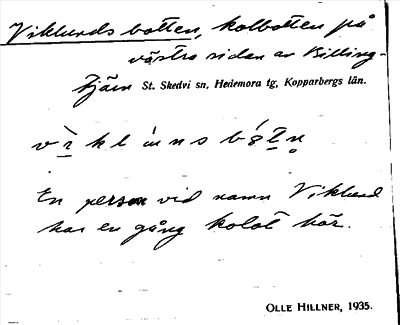 Viklunds botten, kolbotten på
västra sidan av Billing-
tjärn St. Skedvi sn, Hedemora tg, Kopparbergs län.
v ì k l u n n s b ó t n̥
En person vid namn Viklund
har en gång kolat här.
OLLE HILLNER, 1935.